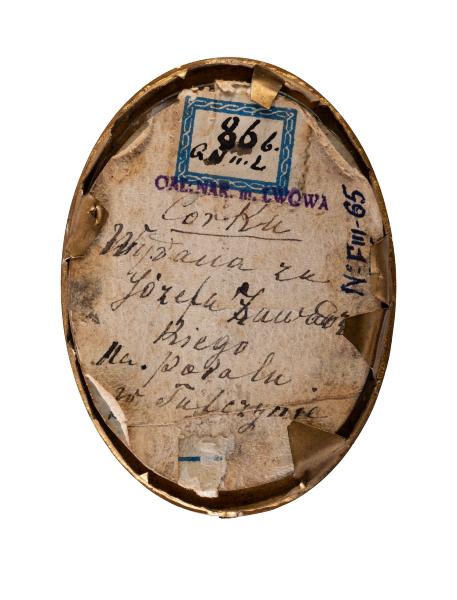 86 b.
G.N.m.L
GAL. NAR. m. LWOWA
Córka
Wydana za
Józefa Zawadz
kiego
Na. Podolu
w Tulczynie
N: FIII-65